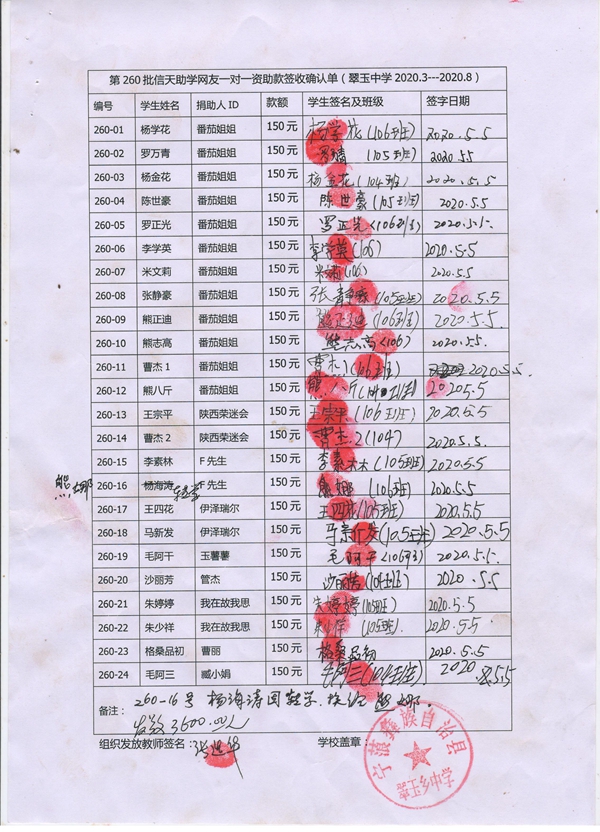 第 260 批信天助学网友一对一资助款签收确认单（翠玉中学 2020.3---2020.8）
编号 学生姓名 捐助人 ID 款额 学生签名及班级 签字日期
260-01 杨学花 番茄姐姐 150 元 杨学花(106班) 2020.5.5
260-02 罗万青 番茄姐姐 150 元 (105班) 2020.5.5
260-03 杨金花 番茄姐姐 150 元 杨金花(104班) 2020.5.5
260-04 陈世豪 番茄姐姐 150 元 陈世豪(105班) 2020.5.5
260-05 罗正光 番茄姐姐 150 元 罗正光(106班) 2020.5.5
260-06 李学英 番茄姐姐 150 元 李学英(106) 2020.5.5
260-07 米文莉 番茄姐姐 150 元 (106) 2020.5.5
260-08 张静豪 番茄姐姐 150 元 张静豪(105班) 2020.5.5
260-09 熊正迪 番茄姐姐 150 元 熊正迪(106班) 2020.5.5
260-10 熊志高 番茄姐姐 150 元 熊志高(106) 2020.5.5
260-11 曹杰 1 番茄姐姐 150 元 曹杰1(106班) 2020.5.5
260-12 熊八斤 番茄姐姐 150 元 熊八斤 2020.5.5
260-13 王宗平 陕西荣迷会 150 元 王宗平(106班) 2020.5.5
260-14 曹杰 2 陕西荣迷会 150 元 曹杰.2(104) 2020.5.5
260-15 李素林 F 先生 150 元 李素林(105班) 2020.5.5
熊娜 260-16 杨海涛 转学 F 先生 150 元 熊娜(106班) 2020.5.5
260-17 王四花 伊泽瑞尔 150 元 王四花(105班) 2020.5.5
260-18 马新发 伊泽瑞尔 150 元 (105班) 2020.5.5
260-19 毛阿干 玉薯蓸 150 元 毛阿干(106班) 2020.5.5
260-20 沙丽芳 管杰 150 元 沙丽芳(104班) 2020.5.5
260-21 朱婷婷 我在故我思 150 元 朱婷婷(105班) 2020.5.5
260-22 朱少祥 我在故我思 150 元 朱少祥(105班) 2020.5.5
260-23 格桑品初 曹丽 150 元 格桑品初 2020.5.5
260-24 毛阿三 臧小娟 150 元 毛阿三(104班) 2020.5.5
备注： 260-16号 杨海涛因转学.换给 熊娜.
发款3600.00元
组织发放教师签名： 学校盖章：
宁蒗彝族自治县
翠玉乡中学